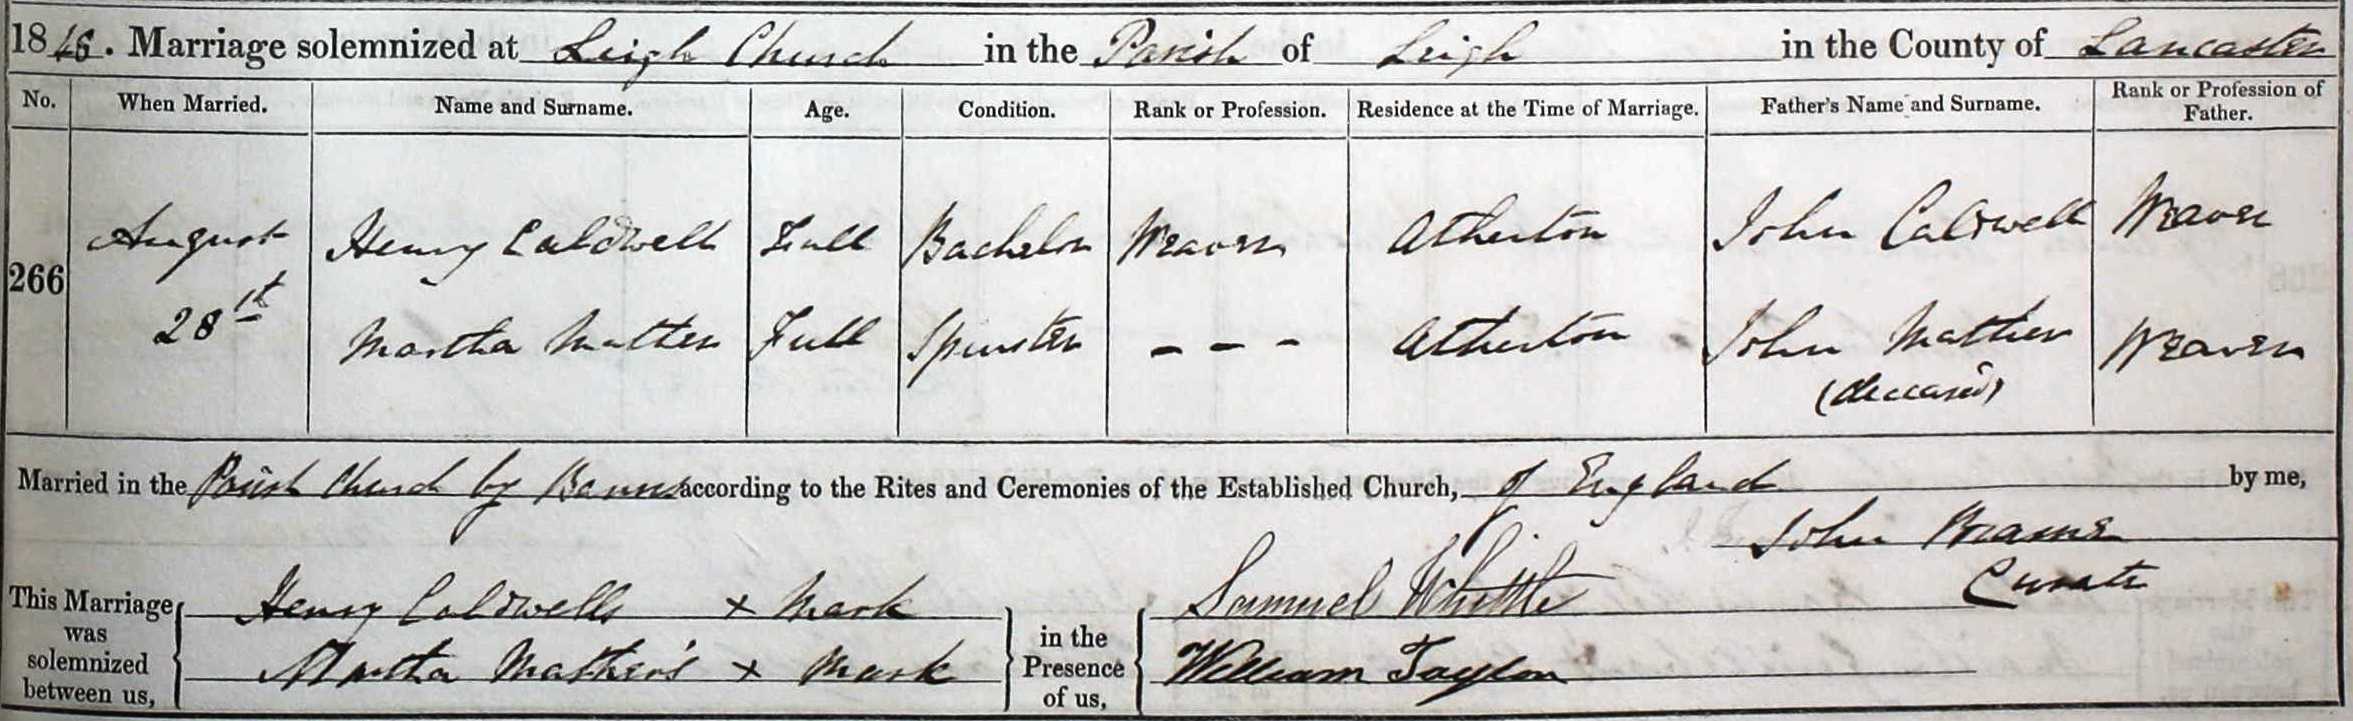 1846. Marriage solemnized at Leigh Church in the Parish of Leigh in the County of Lancaster
No. When Married. Name and Surname. Age. Condition. Rank or Profession. Residence at the Time of Marriage. Father's Name and Surname. Rank or Profession of Father.
266 August 28th Henry Caldwell Full Bachelor Weaver Atherton John Caldwell Weaver
Martha Mather Full Spinster - - - Atherton John Mather (deceased) Weaver
Married in the Parish Church by Banns according to the Rites and Ceremonies of the Established Church, of England by me,
John
Curate
This Marriage was solemnized between us, Henry Caldwells x Mark in the Presence of us, Samuel Whittle
Martha Mather's x Mark William Taylor